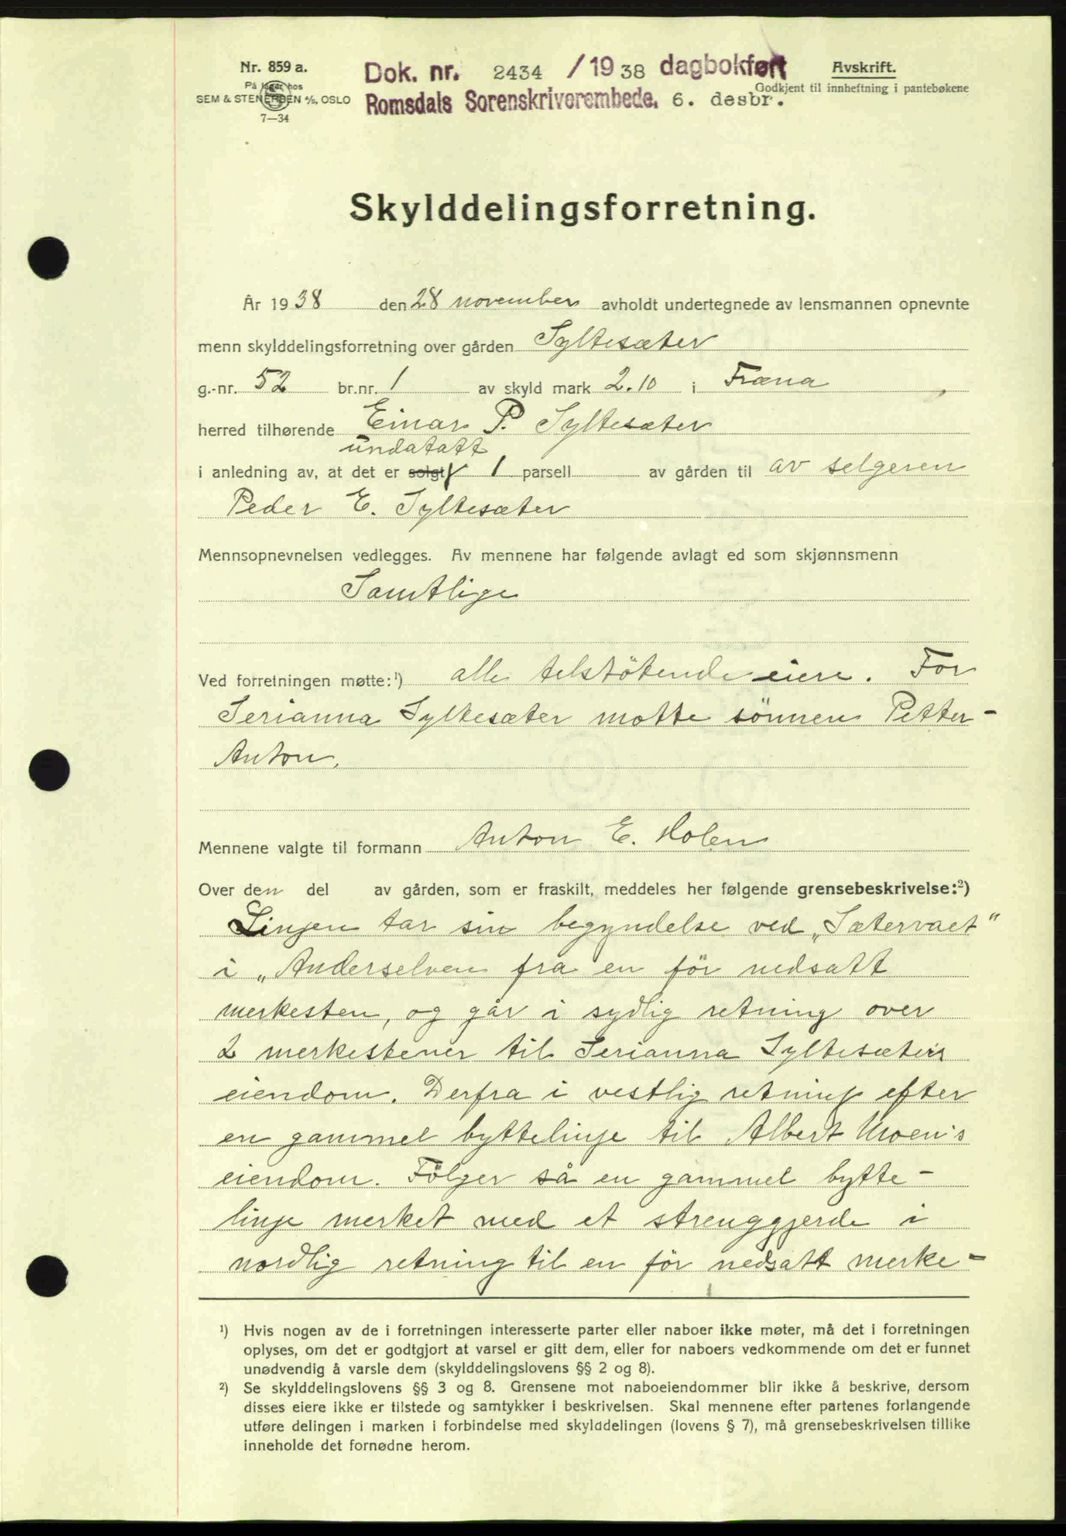 Nr. 859 a.
På lager hos
SEM & STENERSEN A/S, OSLO
7—34
Dok. nr. 2434 /19 38 dagbokført
Romsdals Sorenskriverembede. 6. desbr.
Avskrift.
Godkjent til innheftning i pantebøkene
Skylddelingsforretning.
År 1938 den 28 november avholdt undertegnede av lensmannen opnevnte
menn skylddelingsforretning over gården Syltesæter
g.-nr. 52 br.nr. 1 av skyld mark 2.10 i Fræna
herred tilhørende Einar P. Syltesæter
undatatt
i anledning av, at det er solgt 1 parsell av gården til av selgeren
Peder E. Syltesæter
Mennsopnevnelsen vedlegges. Av mennene har følgende avlagt ed som skjønnsmenn
Samtlige
Ved forretningen møtte:¹) alle tilstötende eiere. For
Serianna Syltesæter møtte sönnen Petter-
Anton.
Mennene valgte til formann Anton E. Holen
Over den del av gården, som er fraskilt, meddeles her følgende grensebeskrivelse:²)
Linjen tar sin begyndelse ved „Sætervaet"
i „Anderselven fra en för nedsatt
merkesten, og går i sydlig retning over
2 merkestener til Serianna Syltesæters
eiendom. Derfra i vestlig retning efter
en gammel byttelinje til Albert Moen's
eiendom. Fölger så en gammel bytte-
linje merket med et strenggjerde i
nordlig retning til en för nedsatt merke-
¹) Hvis nogen av de i forretningen interesserte parter eller naboer ikke møter, må det i forretningen
oplyses, om det er godtgjort at varsel er gitt dem, eller for naboers vedkommende om det er funnet
unødvendig å varsle dem (skylddelingslovens §§ 2 og 8).
²) Se skylddelingslovens §§ 3 og 8. Grensene mot naboeiendommer blir ikke å beskrive, dersom
disses eiere ikke er tilstede og samtykker i beskrivelsen. Skal mennene efter partenes forlangende
utføre delingen i marken i forbindelse med skylddelingen (lovens § 7), må grensebeskrivelsen tillike
inneholde det fornødne herom.